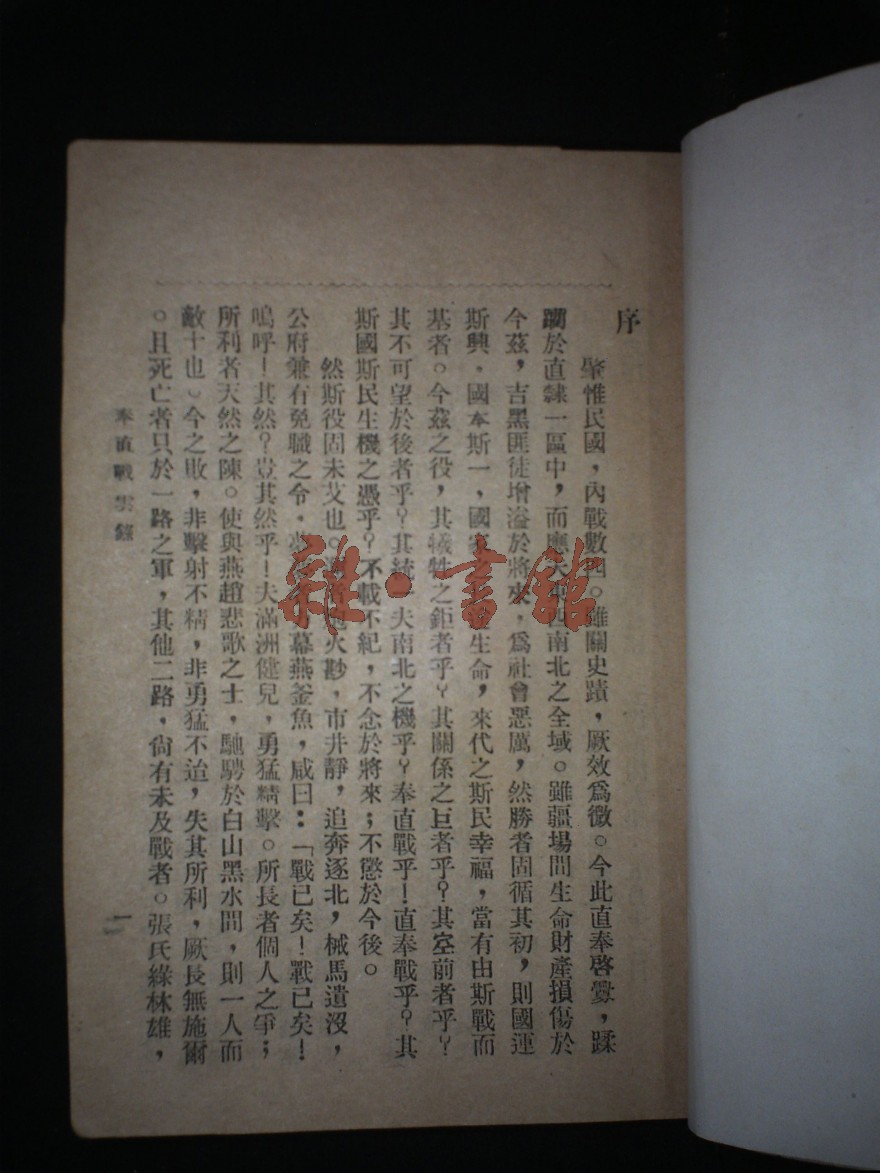 序
肇惟民國，內戰數四。雖關史蹟，厥效爲微。今此直奉啓釁，蹂
躪於直隸一區中，而應 西南北之全域。雖疆場間生命財產損傷於
今茲，吉黑匪徒增溢於將來，爲社會惡厲，然勝者固循其初，則國運
斯興。國本斯一，國家 生命，來代之斯民幸福，當有由斯戰而
基者。今茲之役，其犧牲之鉅者乎？其關係之巨者乎？其空前者乎？
其不可望於後者乎？其統一夫南北之機乎？奉直戰乎！直奉戰乎？其
斯國斯民生機之憑乎？不載不紀，不念於將來；不懲於今後。
然斯役固未艾也。 火尠，市井靜，追奔逐北，械馬遺沒，
公府兼有免職之令， 幕燕釜魚，咸曰：「戰已矣！戰已矣！
嗚呼！其然？豈其然乎！夫滿洲健兒，勇猛精擊。所長者個人之爭；
所利者天然之陳。使與燕趙悲歌之士，馳騁於白山黑水間，則一人而
敵十也。今之敗，非擊射不精，非勇猛不迨，失其所利，厥長無施爾
。且死亡者只於一路之軍，其他二路，尙有未及戰者。張氏綠林雄，
奉直戰雲錄
一
雜·書館